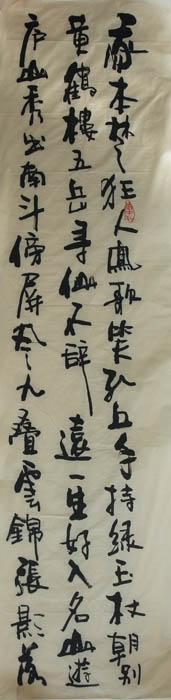 我本楚狂人鳳歌笑孔丘手持緑玉杖朝别
黄鶴樓五岳寻仙不辞遠一生好入名山遊
庐山秀出南斗傍屏风九疊雲錦張影落